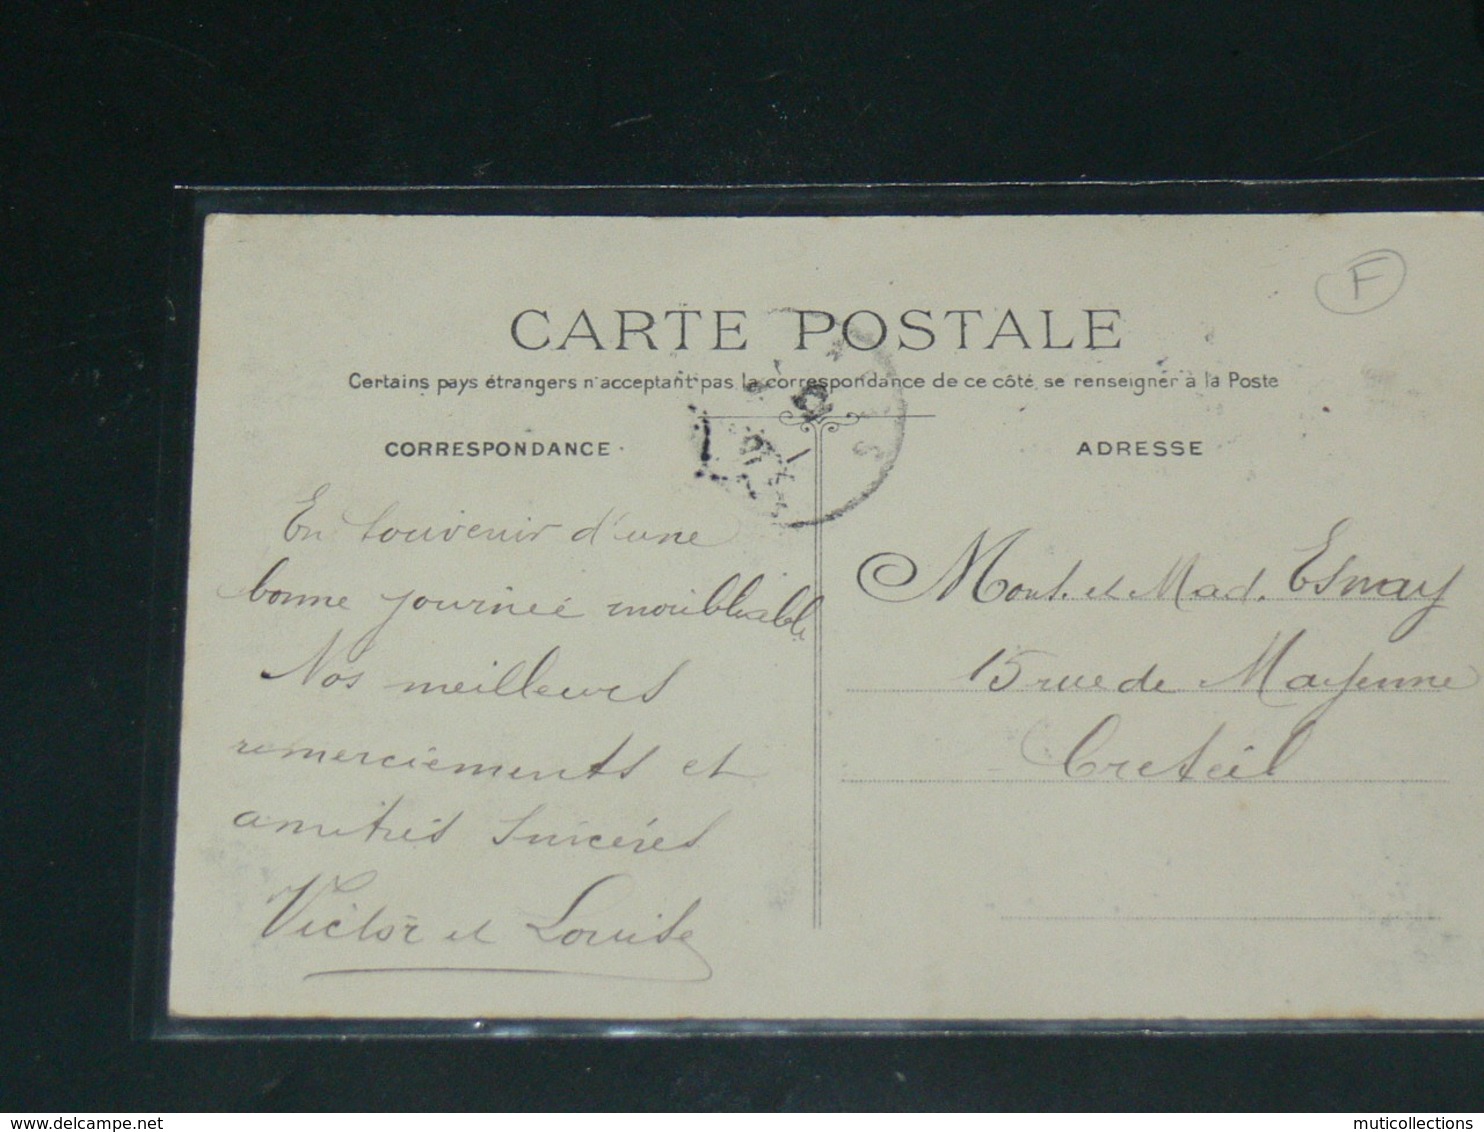 F
CARTE POSTALE
Certains pays étrangers n'acceptant pas la correspondance de ce côté, se renseigner à la Poste
CORRESPONDANCE
ADRESSE
En souvenir d'une
bonne journée inoubliable
Nos meilleurs
remerciements et
amitiés sincéres
Victor et Louise
Mons. et Mad. Esnay
15 rue de Mayenne
Creteil
muticollections